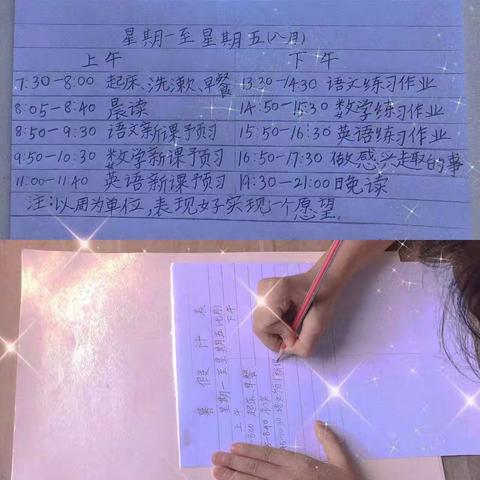 星期一至星期五(八月)
上午 下午
7:30-8:00 起床、洗漱、早餐 13:30-14:30 语文练习作业
8:05-8:40 晨读 14:50-15:30 数学练习作业
8:50-9:30 语文新课预习 15:50-16:30 英语练习作业
9:50-10:30 数学新课预习 16:50-17:30 做感兴趣的事
11:00-11:40 英语新课预习 19:30-21:00 晚读
注:以周为单位,表现好实现一个愿望。
暑假计表
星期一至星期五(七月)
上午 下午
起床、早餐